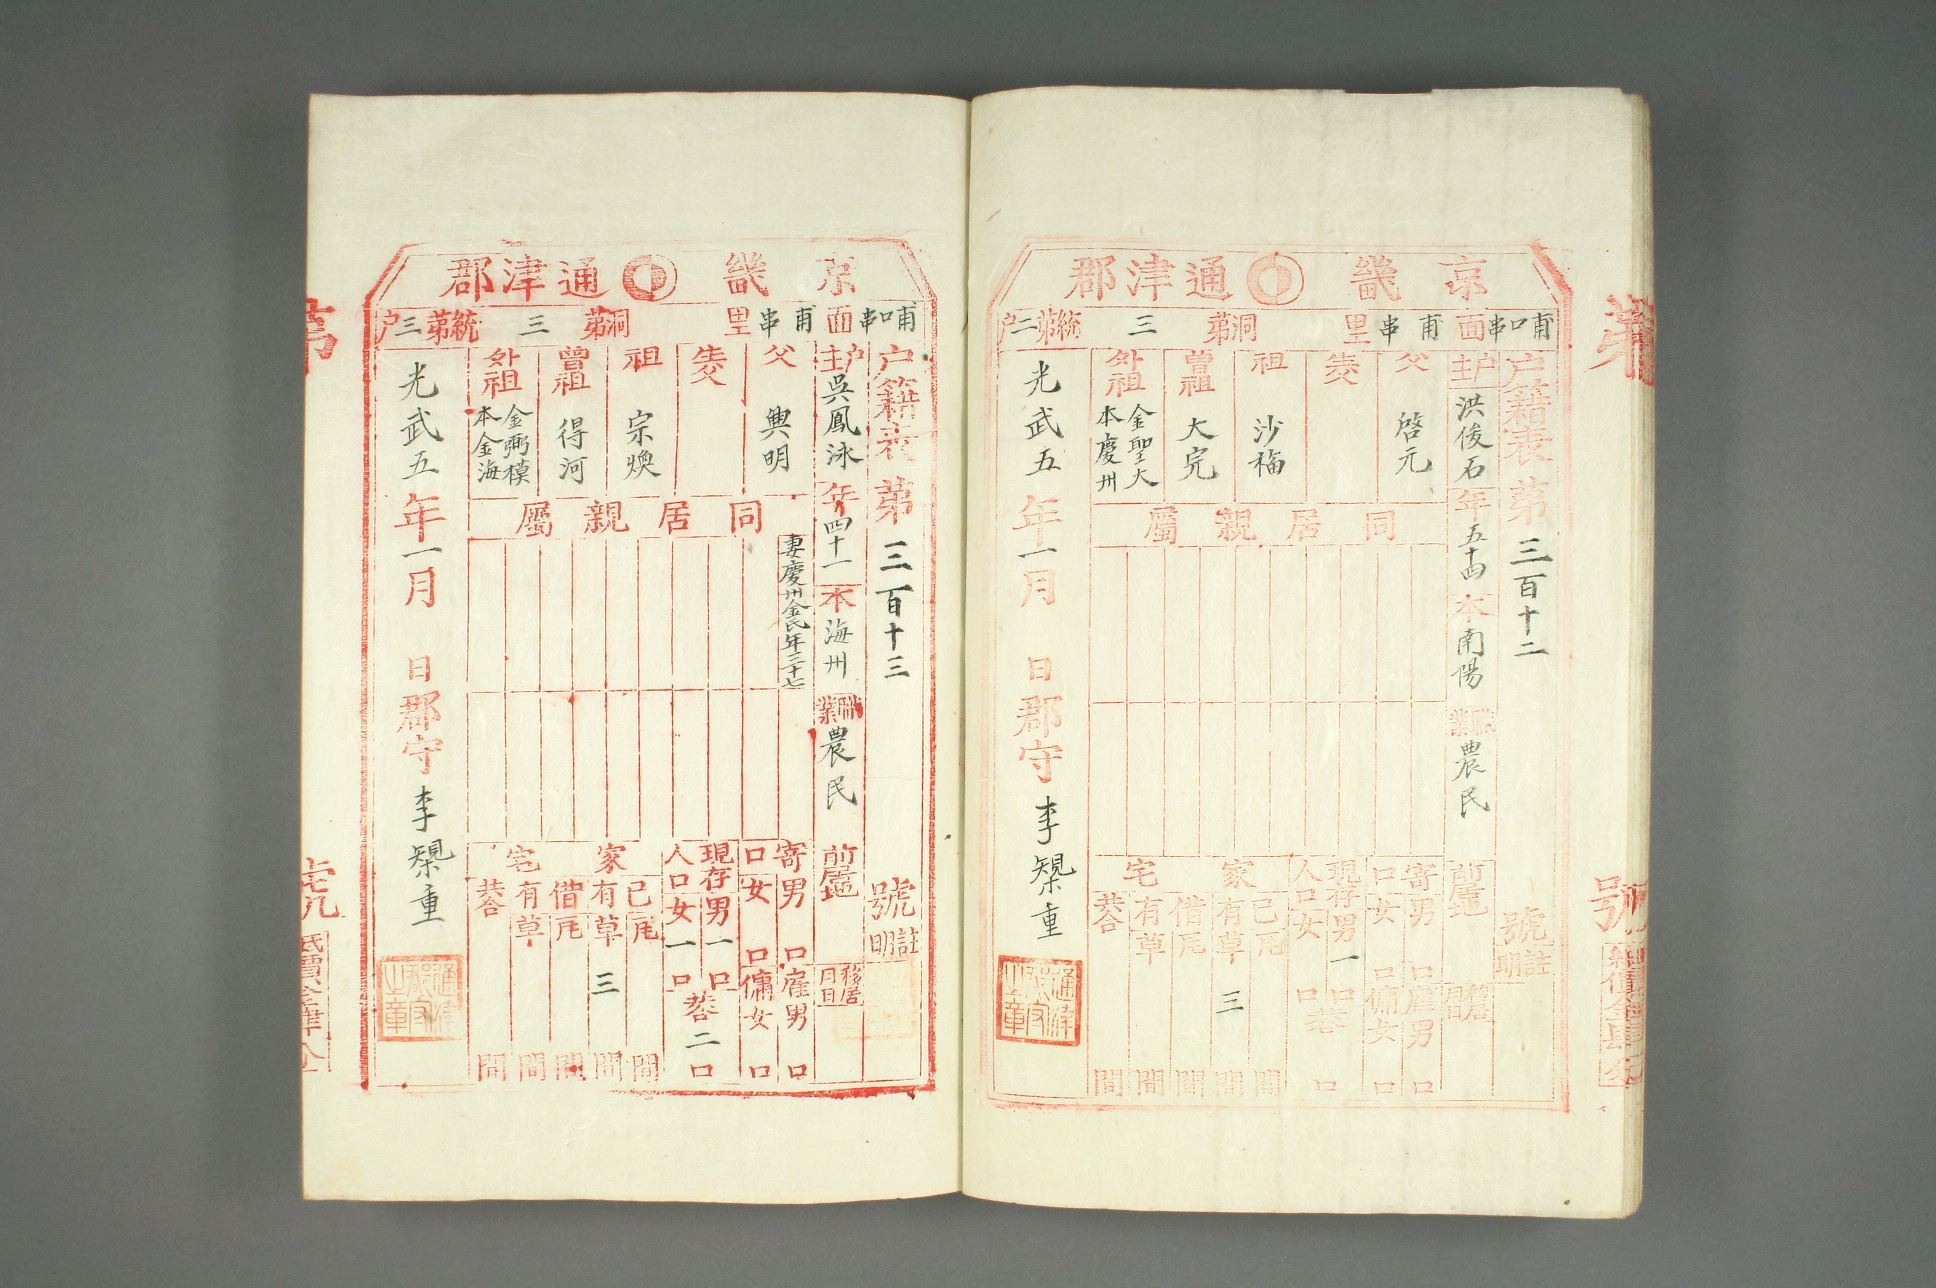 京畿 通津郡
甫口串面 甫串里 洞第 三 統第二户
户籍表 第 三百十二 號
註明
户主 洪俊石 年 五十四 本 南陽 職業 農民 前居地
移居月日
父 啓元
生父
祖 沙福
曾祖 大完
外祖 金聖大 本慶州
同居親屬
寄口 男 口 女 口
雇男 口 傭女 口
現存人口 男 一 口 女 口 共合 口
家宅
已有 瓦 間
草 三 間
借有 瓦 間
草 間
共合 間
光武五年一月 日
郡守 李槼重
通津郡守之章
京畿 通津郡
甫口串面 甫串里 洞第 三 統第三户
户籍表 第 三百十三 號
註明
户主 吳鳳泳 年 四十一 本 海州 職業 農民 前居地
移居月日
父 興明
生父
祖 宗煥
曾祖 得河
外祖 金弼模 本金海
同居親屬
妻慶州金氏年三十七
寄口 男 口 女 口
雇男 口 傭女 口
現存人口 男 一 口 女 一 口 共合 二 口
家宅
已有 瓦 間
草 三 間
借有 瓦 間
草 間
共合 間
光武五年一月 日
郡守 李槼重
通津郡守之章